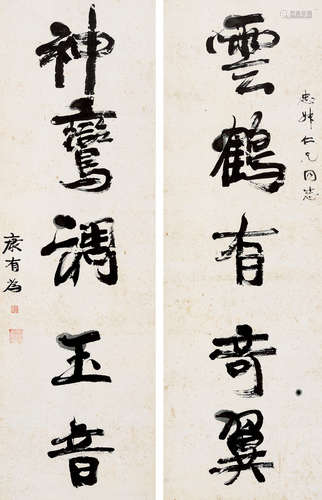 雲鶴有奇翼
仁兄同志
神鸞調玉音
康有為